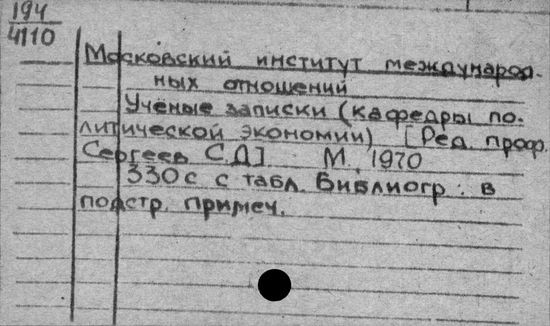 194
4110
Московский институт международ-
ных отношений
Учёные записки (кафедры по-
литической экономии) [Ред. проф.
Сергеев С.Д] М. 1970
330с с табл. Библиогр: в
подстр. примеч.